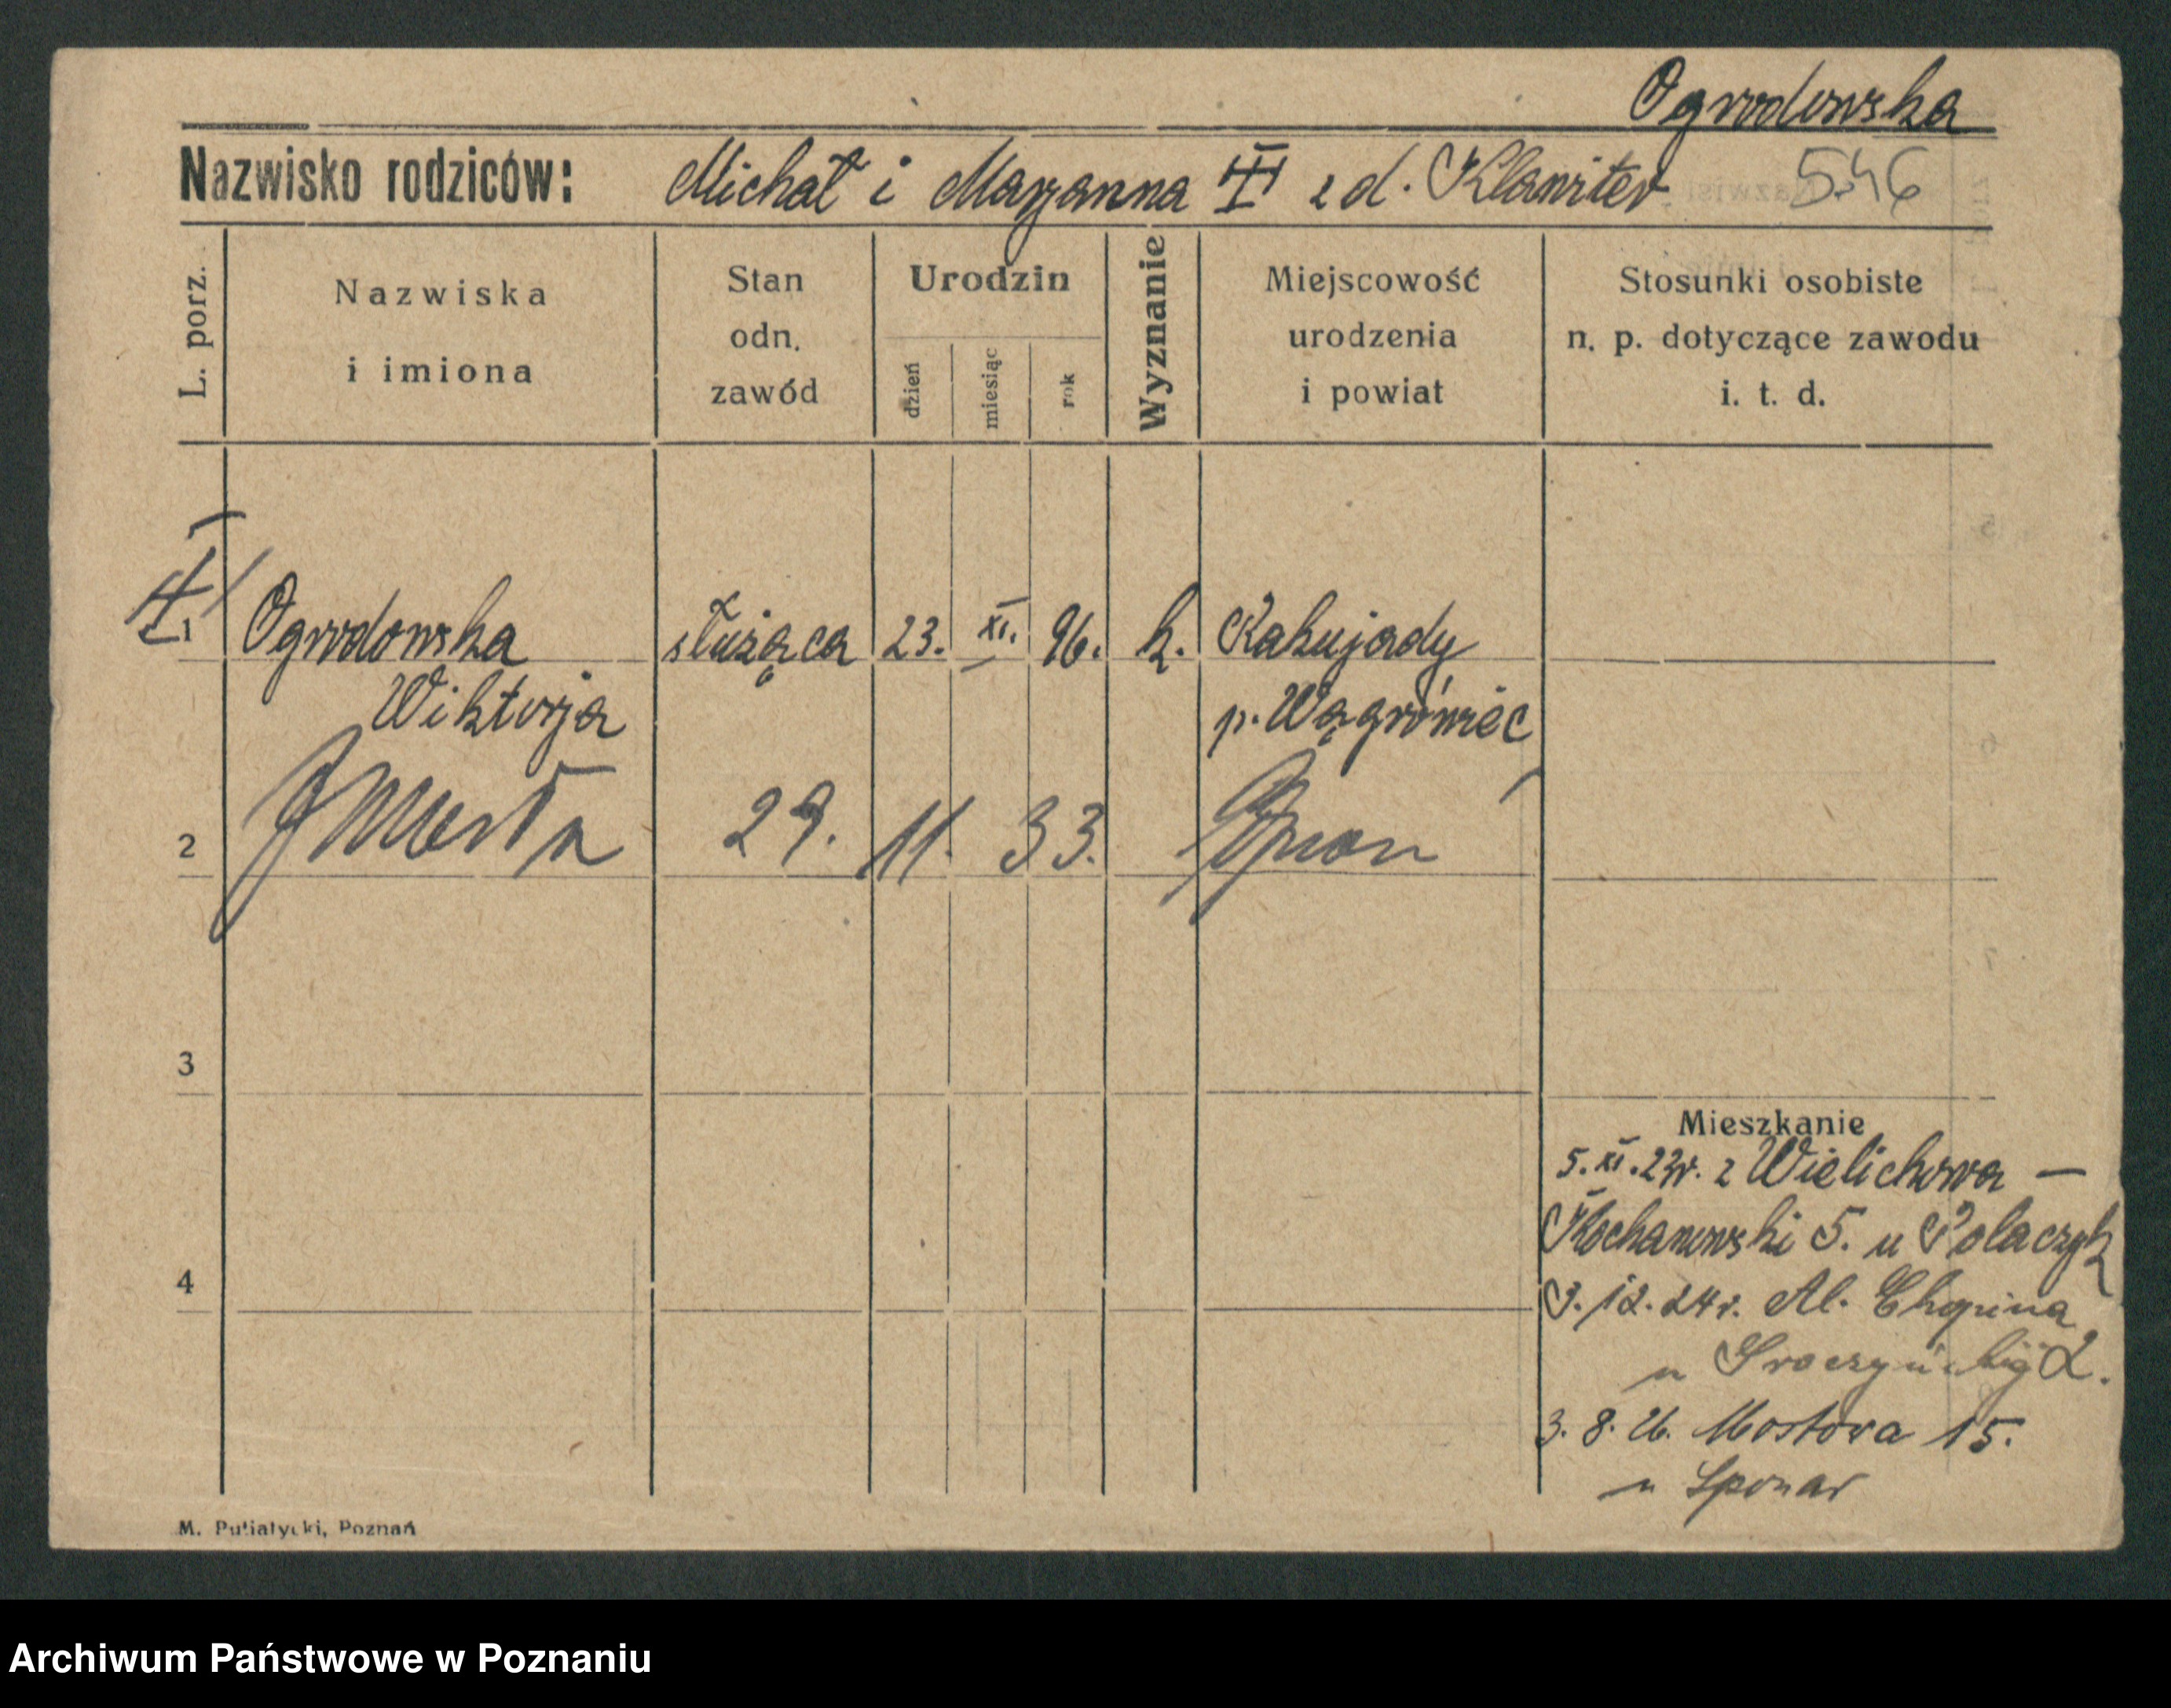 Ogrodowska
Nazwisko rodziców: Michał i Marjanna z d. Klawiter 546
L. porz.
Nazwiska
i imiona
Stan
odn.
zawód
Urodzin
dzień
miesiąc
rok
Wyznanie
Miejscowość
urodzenia
i powiat
Stosunki osobiste
n. p. dotyczące zawodu
i. t. d.
1 Ogrodowska służąca 23. XI. 96. k. Kakujady
Wiktorja p. Wągrówiec
2 Zmarła 29. 11. 33.
3
Mieszkanie
5. XI. 23r. z Wielichowa —
Kochanowski 5. u Polaczyk
4
3. 12. 24r. Al. Chopina
u 2.
3. 8. 26. Mostowa 15.
u Sponar
M. Putiatycki, Poznań
Archiwum Państwowe w Poznaniu